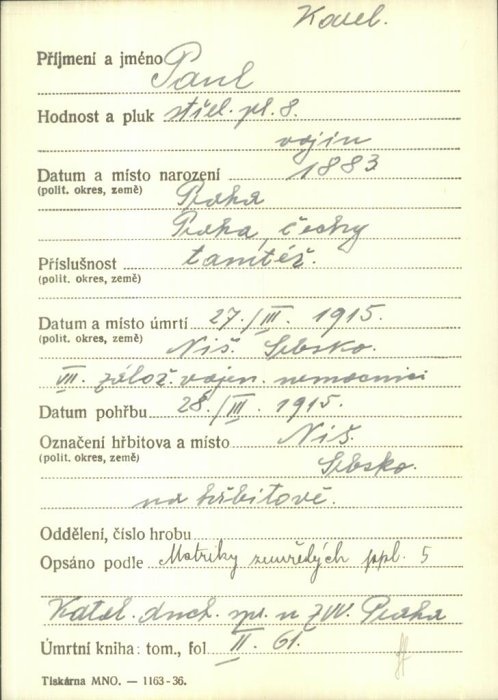 Karel.
Příjmení a jméno Paul
Hodnost a pluk střel. pl. 8.
vojín
Datum a místo narození 1883
(polit. okres, země) Praha
Praha, čechy
Příslušnost tamtéž.
(polit. okres, země)
Datum a místo úmrtí 27./III. 1915.
(polit. okres, země) Niš. Srbsko.
VII. zálož. vojen. nemocnici
Datum pohřbu 28./III. 1915.
Označení hřbitova a místo Niš.
(polit. okres, země) Srbsko.
na hřbitově.
Oddělení, číslo hrobu
Opsáno podle Matriky zemřelých ppl. 5
Katol. duch. spr. u ZVV. Praha
Úmrtní kniha: tom., fol II. 61.
Tiskárna MNO. — 1163-36.